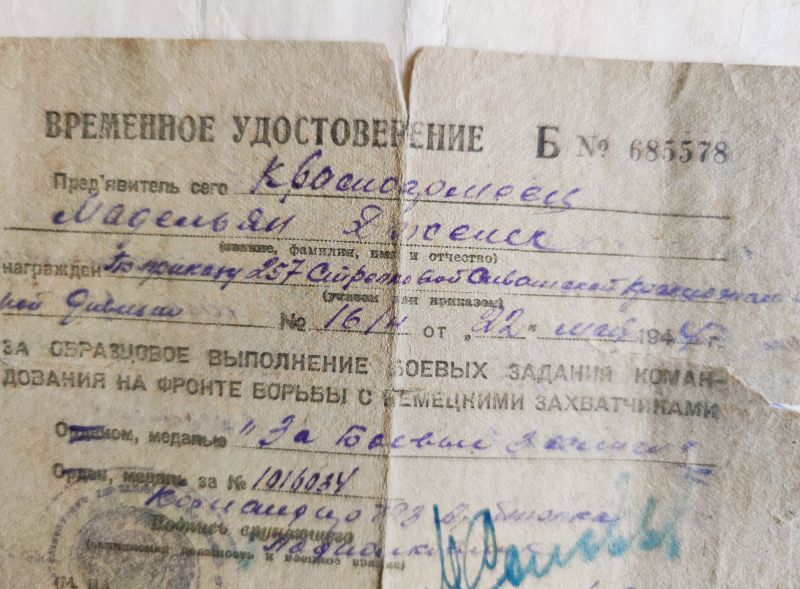 ВРЕМЕННОЕ УДОСТОВЕРЕНИЕ Б № 685578
Пред'явитель сего Красноармеец
Мадельян
(звание, фамилия, имя и отчество)
награжден По приказу 257 Стрелковой Сивашской Краснознамен
ной дивизии
(указом или приказом)
№ 16/н от „22" мая 1944 г.
ЗА ОБРАЗЦОВОЕ ВЫПОЛНЕНИЕ БОЕВЫХ ЗАДАНИЙ КОМАН-
ДОВАНИЯ НА ФРОНТЕ БОРЬБЫ С НЕМЕЦКИМИ ЗАХВАТЧИКАМИ
Орденом, медалью "За Боевые заслуги"
Орден, медаль за № 1016034
Командир
Подпись вручающего
Подполковник